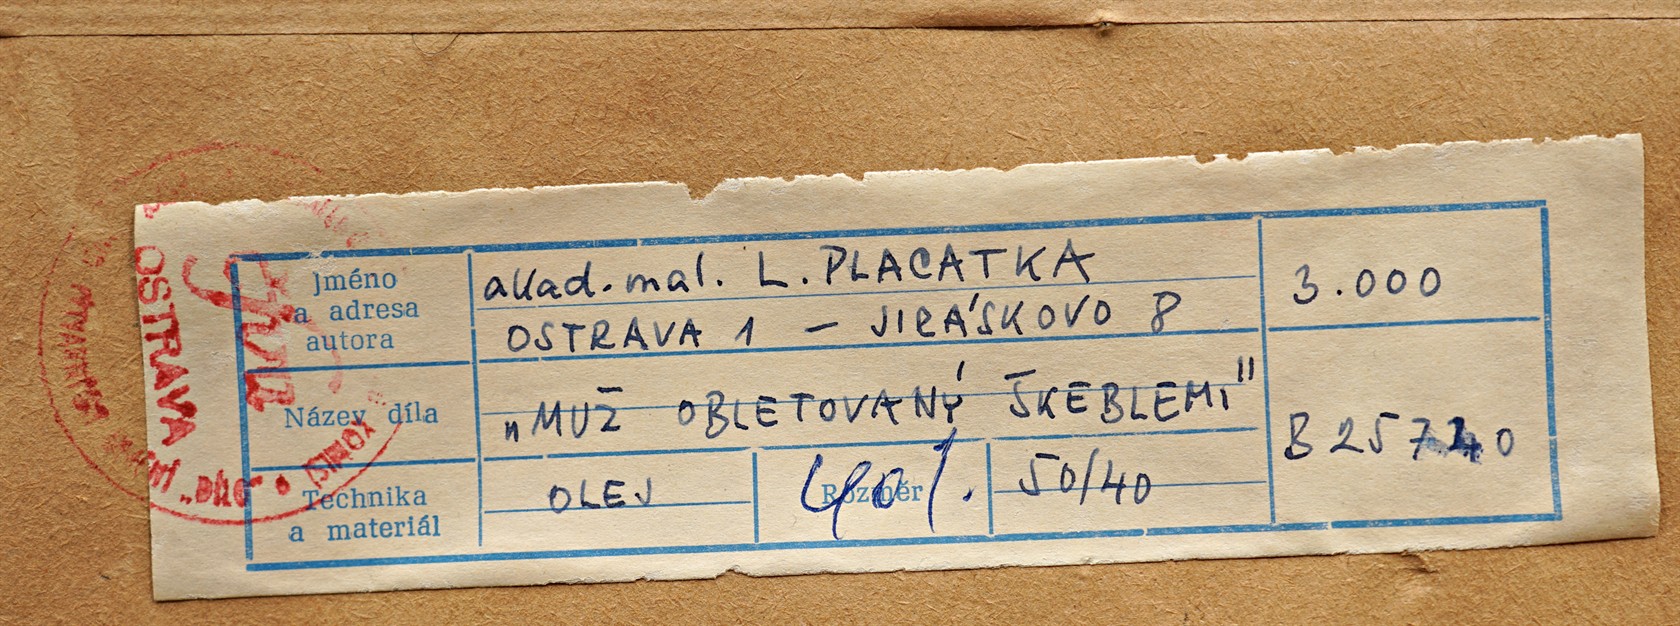 Jméno
a adresa
autora
akad. mal. L. PLACATKA
OSTRAVA 1 – JIRÁSKOVO 8
3.000
Název díla
„MUŽ OBLETOVANÝ ŠKEBLEMI"
B 25740
Technika
a materiál
OLEJ
Rozměr
50/40
OSTRAVA